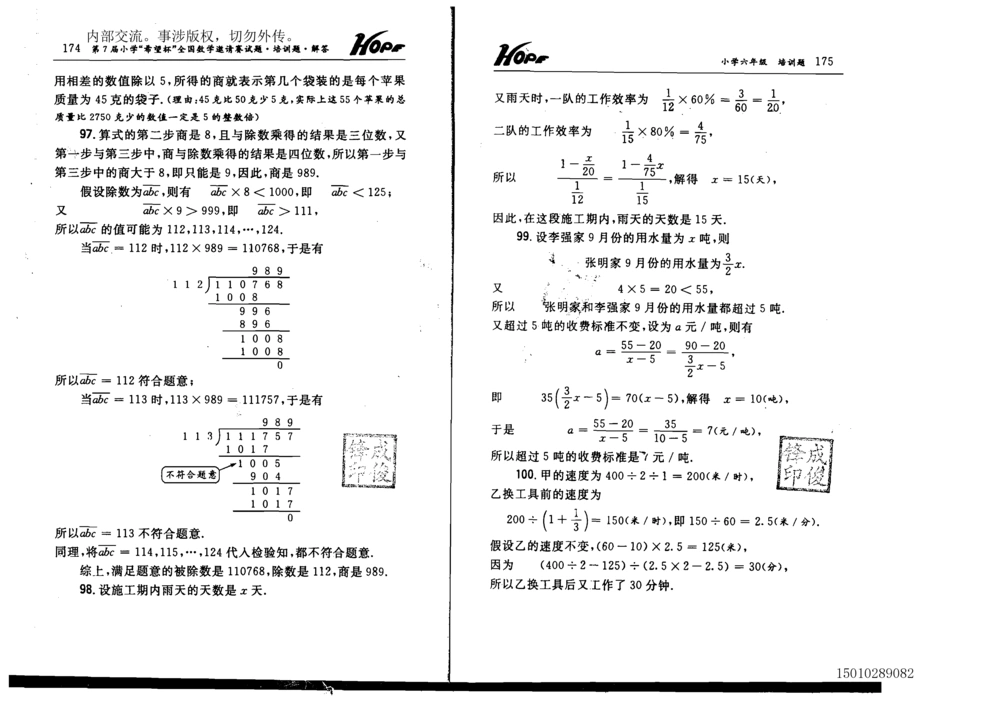 内部交流。事涉版权，切勿外传。
174 第7届小学“希望杯”全国数学邀请赛试题·培训题·解答
HOPE
用相差的数值除以5,所得的商就表示第几个袋装的是每个苹果
质量为45克的袋子.(理由:45克比50克少5克,实际上这55个苹果的总
质量比2750克少的数值一定是5的整数倍)
97.算式的第二步商是8,且与除数乘得的结果是三位数,又
第一步与第三步中,商与除数乘得的结果是四位数,所以第一步与
第三步中的商大于8,即只能是9,因此,商是989.
假设除数为abc,则有 abc×8<1000,即 abc<125;
又 abc×9>999,即 abc>111,
所以abc的值可能为112,113,114,…,124.
当abc=112时,112×989=110768,于是有
9 8 9
1 1 2 ) 1 1 0 7 6 8
1 0 0 8
9 9 6
8 9 6
1 0 0 8
1 0 0 8
0
所以abc=112符合题意;
当abc=113时,113×989=111757,于是有
9 8 9
1 1 3 ) 1 1 1 7 5 7
1 0 1 7
1 0 0 5
不符合题意
9 0 4
1 0 1 7
1 0 1 7
0
所以abc=113不符合题意.
同理,将abc=114,115,…,124代入检验知,都不符合题意.
综上,满足题意的被除数是110768,除数是112,商是989.
98.设施工期内雨天的天数是x天.
锋成
印俊
HOPE
小学六年级 培训题 175
又雨天时,一队的工作效率为 1/12×60%=3/60=1/20,
二队的工作效率为 1/15×80%=4/75,
所以 (1-x/20)/(1/12)=(1-4/75x)/(1/15),解得 x=15(天),
因此,在这段施工期内,雨天的天数是15天.
99.设李强家9月份的用水量为x吨,则
张明家9月份的用水量为3/2x.
又 4×5=20<55,
所以 张明家和李强家9月份的用水量都超过5吨.
又超过5吨的收费标准不变,设为a元/吨,则有
a=(55-20)/(x-5)=(90-20)/(3/2x-5),
即 35(3/2x-5)=70(x-5),解得 x=10(吨),
于是 a=(55-20)/(x-5)=35/(10-5)=7(元/吨),
所以超过5吨的收费标准是7元/吨.
100.甲的速度为400÷2÷1=200(米/时),
乙换工具前的速度为
200÷(1+1/3)=150(米/时),即150÷60=2.5(米/分).
假设乙的速度不变,(60-10)×2.5=125(米),
因为 (400÷2-125)÷(2.5×2-2.5)=30(分),
所以乙换工具后又工作了30分钟.
锋成
印俊
15010289082